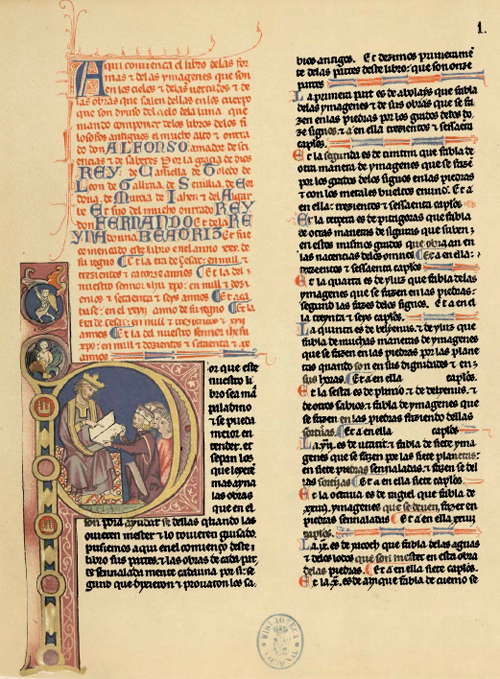 1.
Aqui comiença el libro delas for
mas & delas ymagenes que son
en los cielos & delas uertudes & de
las obras que salen dellas en los cuerpos
que son dyuso del cielo dela luna que
mando componer delos libros delos fi
losofos antiguos el mucho alto & onrra
do don ALFONSO amador de sci
encias & de saberes por la gracia de dios
REY de Castiella de Toledo de
Leon de Gallizia de Seuilla de Cor
doua de Murcia de Iahen & del Algarue
Et fijo del mucho onrrado REY
don FERNANDO Et dela RE
YNA donna BEATORIZ Et fue
començado este libro enel anno
de su regno Et la era de Cesar en mill &
trezientos & catorze annos Et la del
nuestro sennor ihu xpo en mill & dozi
entos & setaenta & seys annos Et
en el anno de su regno Et la
era de Cesar en mill & trezientos &
annos Et la del nuestro sennor ihesu
xpo en mill & dozientos & setaenta &
annos
or que este
nuestro li
bro sea mas
paladino
& se pueda
meior en
tender &
sepan los
que leyeren
mas ayna
las obras
que en el
son pora ayudar se dellas quando las
ouieren mester & lo touieren guisado
pusiemos aqui en el comienço deste
libro sus partes & las obras de cada part
sennalada mente cadauna por si se
gund que dixieron & prouaron los sa
bios antigos. Et dezimos primeramen
te delas partes deste libro que son onze
partes
La primera part es de abolays que fabla
delas ymagenes & de sus obras que se fa
zen en las piedras por los grados delos do
ze signos & a en ella trezientos & sessaenta
capitlos.
Et la segunda es de timtim que fabla de
otra manera de ymagenes que se fazen
por los grados delos signos en las piedras
& con los metales bueltos en uno. Et a
en ella trezientos & sessaenta capitlos
Et la tercera es de pitagoras que fabla
de otras maneras de figuras que suben
en estos mismos grados que obran en
las nacencias delos omnes Et a en ella
trezientos & sessaenta capitlos
Et la quarta es de ylus que fabla delas
ymagenes que se fazen en las piedras
segund las fazes delos signos. Et a en el
la treynta & seys capitlos.
La quinta es de belyenus & de ylus que
fabla de muchas maneras de ymagenes
que se fazen en las piedras por las plane
tas quando son en sus dignidades & en
sus horas. Et a en ella capitlos.
Et la sesta es de plinio & de belyenus &
de otros sabios & fabla de ymagenes que
se fazen en las piedras faziendo dellas
sortijas. Et a en ella capitlos
La .vij. es de utarit & fabla de siete yma
genes que se fazen por las siete planetas
en siete piedras sennaladas & fazen se del
las sortijas Et a en ella siete capitlos.
Et la octaua es de ragiel que fabla de
xxiiij. ymagenes que se deuen fazer en
piedras sennaladas Et a en ella xxiiij
capitlos.
La .ix. es de yacoth que fabla delas aguas
& delos que son mester en esta obra
delas piedras. Et a en ella siete capitlos.
Et la .x. es de aly que fabla de cuemo se
BIBLIOTECA